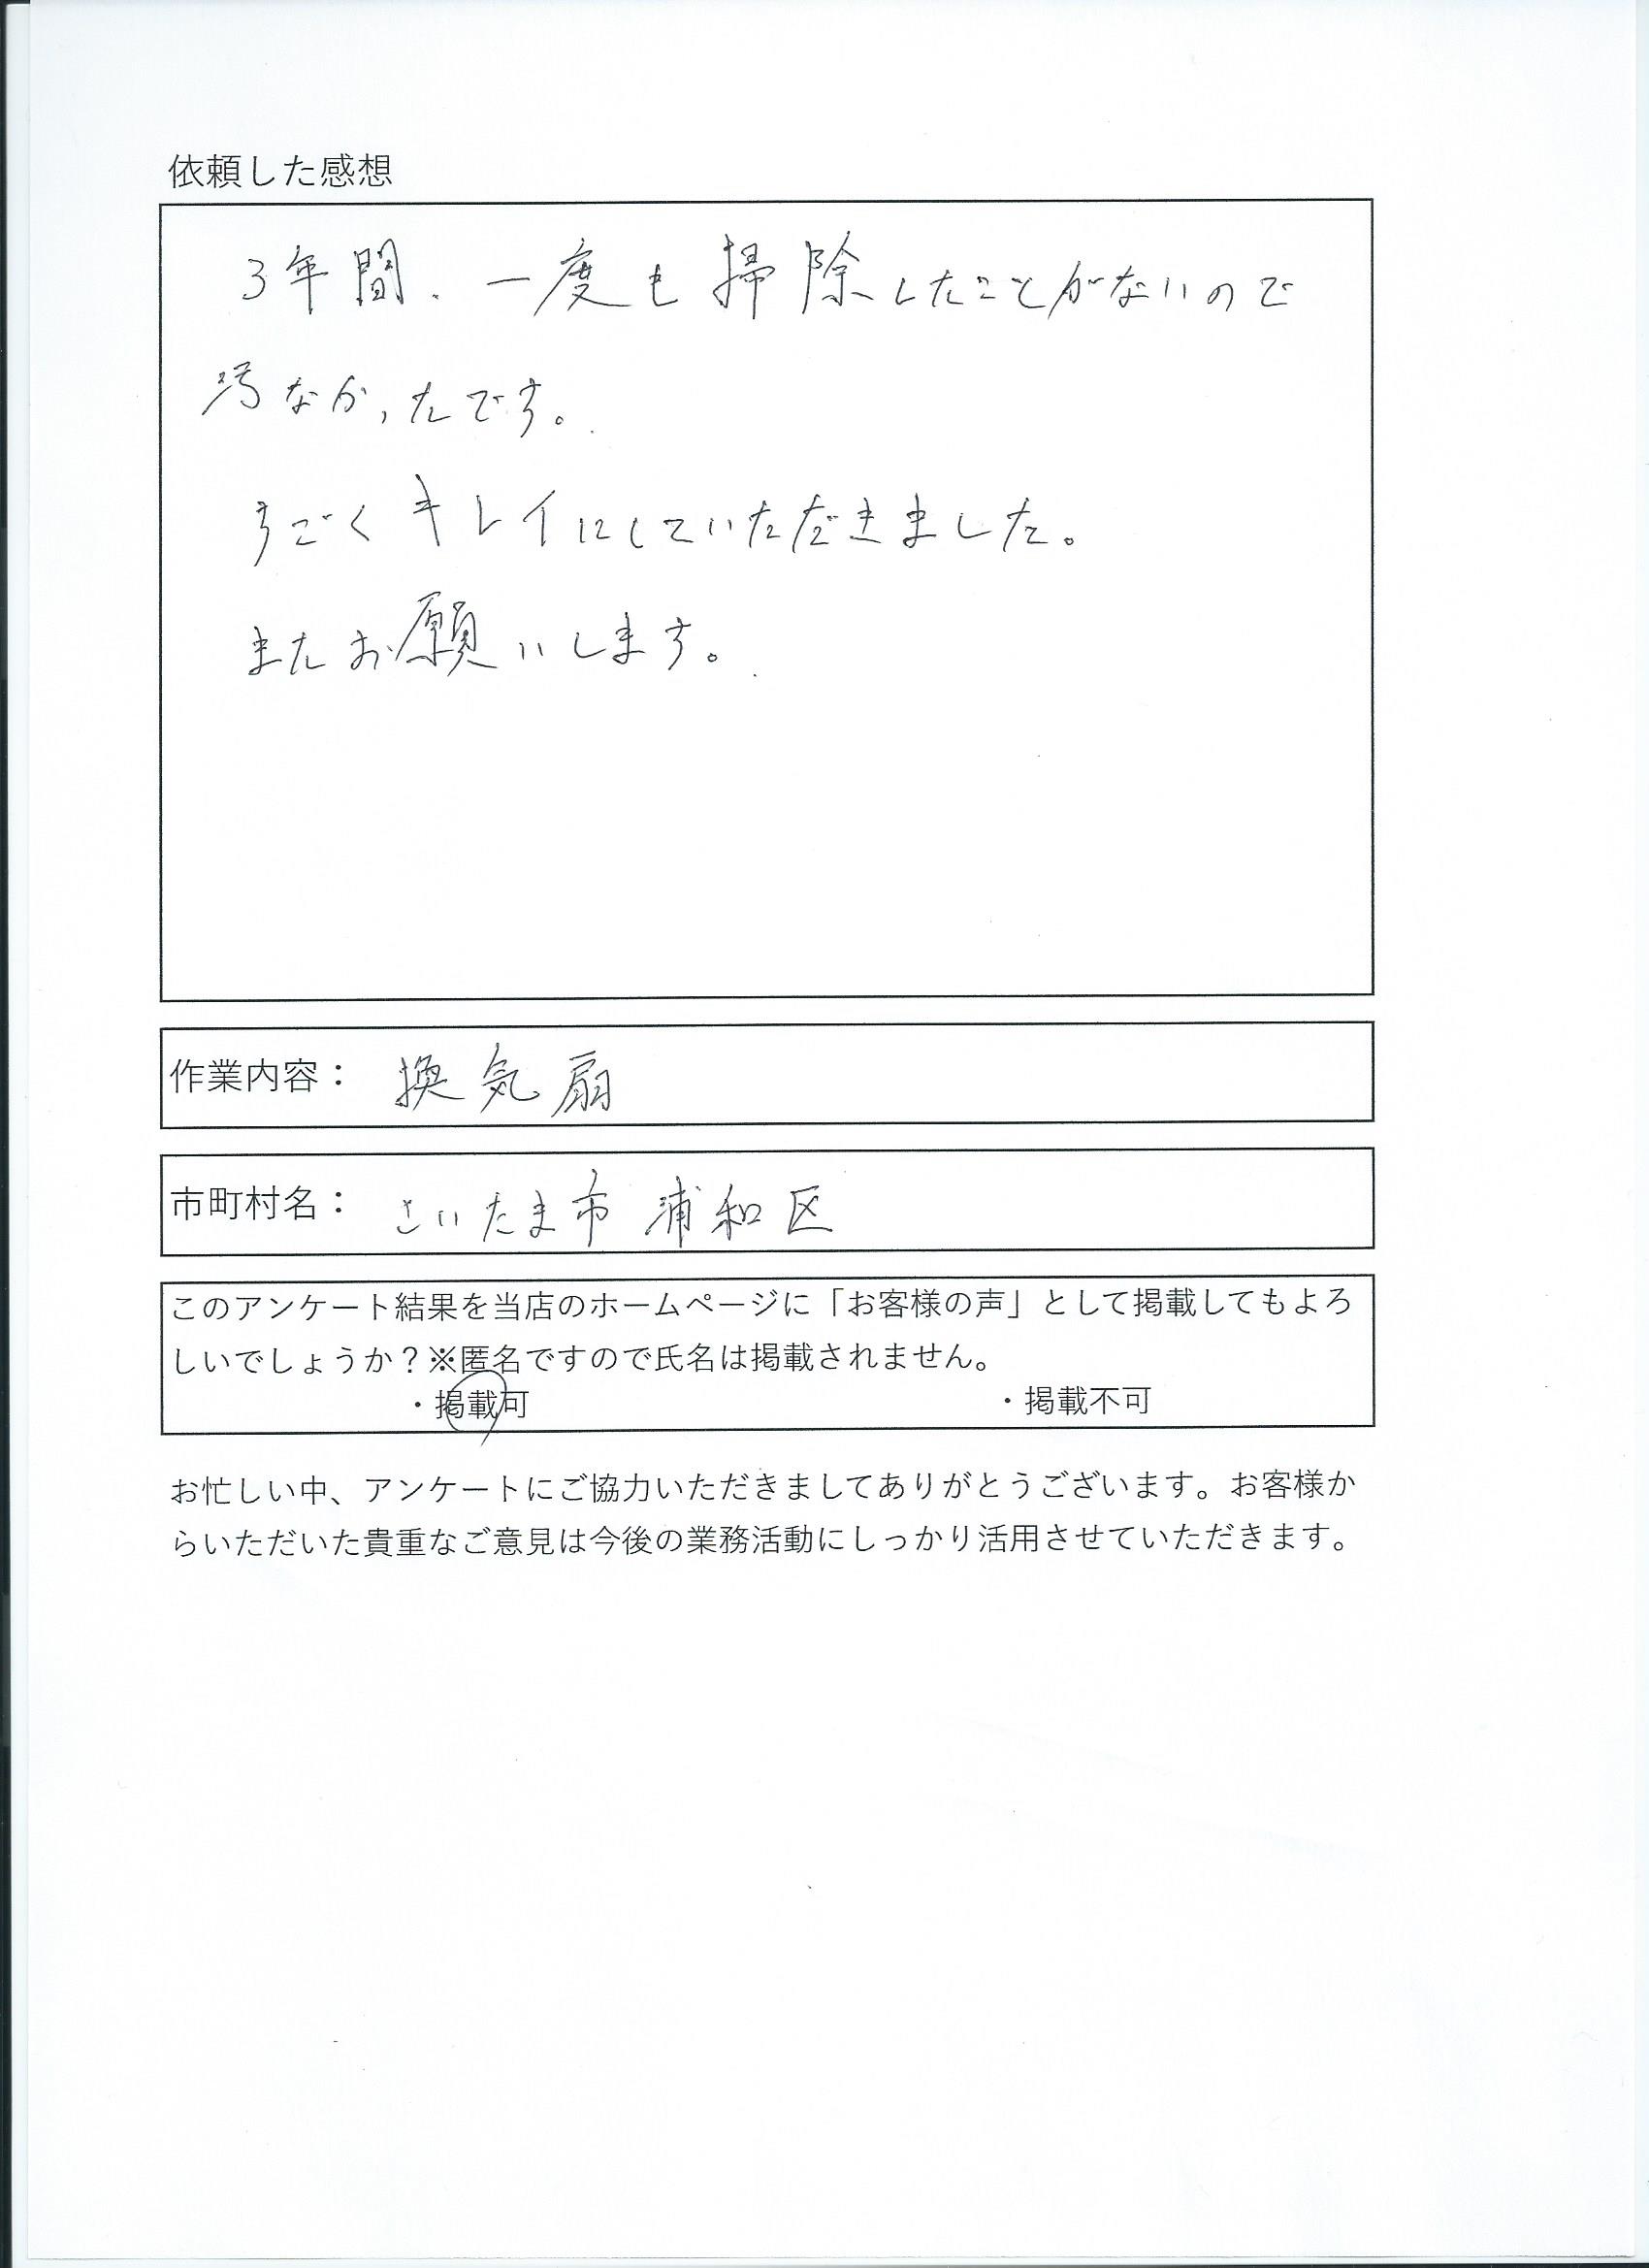 依頼した感想
3年間、一度も掃除したことがないので
汚なかったです。
すごくキレイにしていただきました。
またお願いします。
作業内容： 換気扇
市町村名： さいたま市浦和区
このアンケート結果を当店のホームページに「お客様の声」として掲載してもよろ
しいでしょうか？※匿名ですので氏名は掲載されません。
・掲載可 ・掲載不可
お忙しい中、アンケートにご協力いただきましてありがとうございます。お客様か
らいただいた貴重なご意見は今後の業務活動にしっかり活用させていただきます。